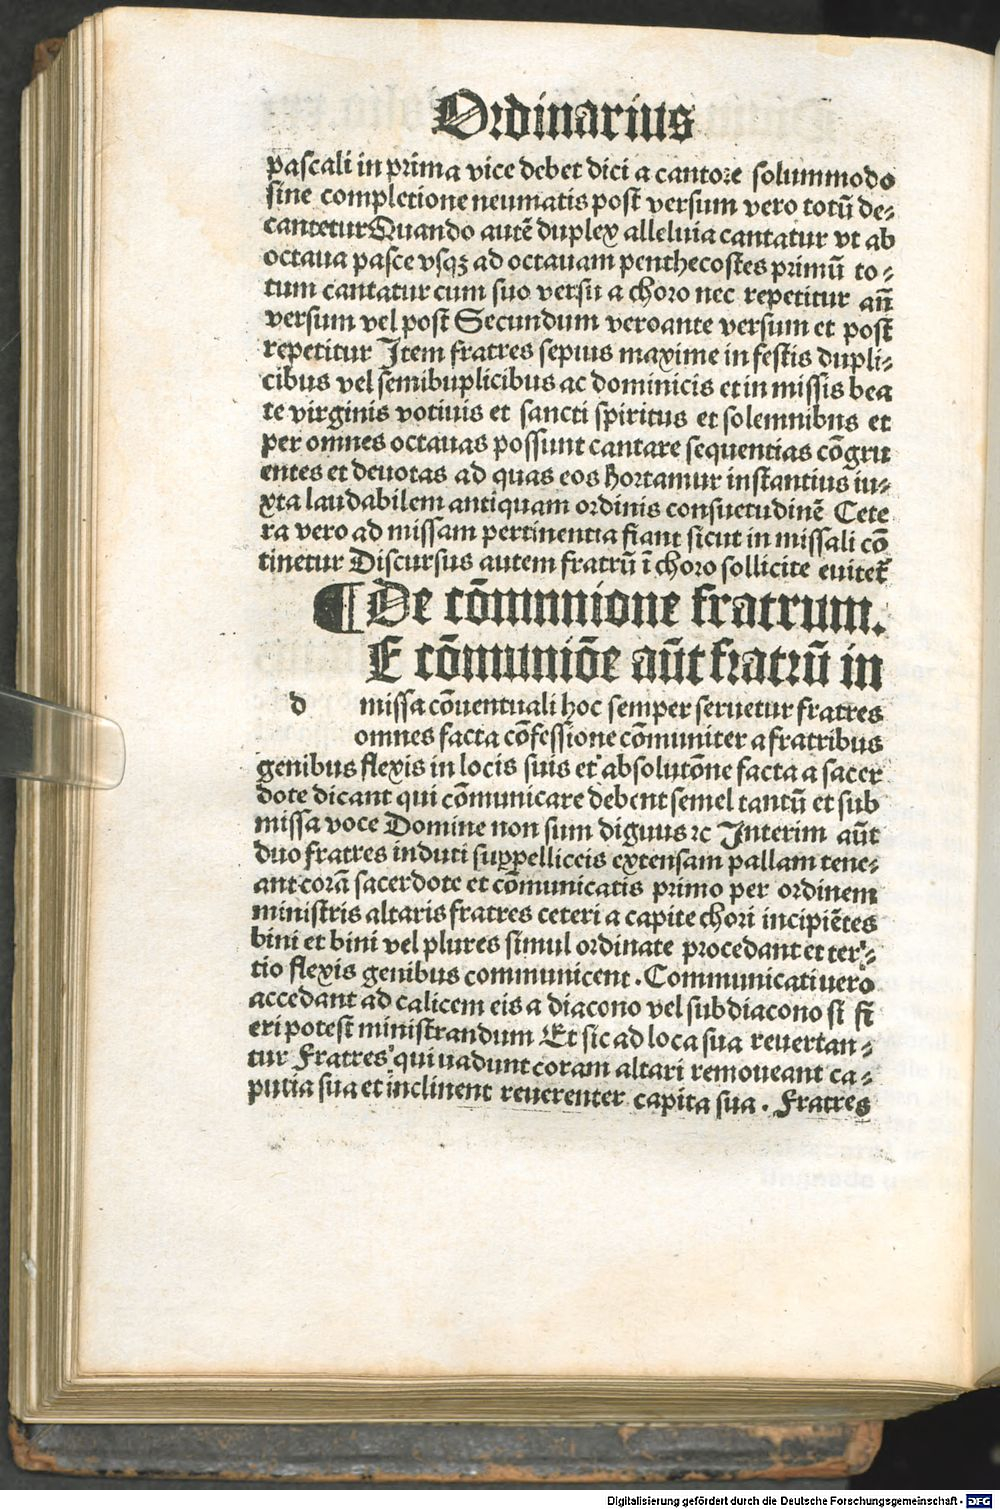 Ordinarius
pascali in prima vice debet dici a cantore solummodo
sine completione neumatis post̄ versum vero totū de⸗
cantetur Quando autē duplex alleluia cantatur vt ab
octaua pasce vsqꝫ ad octauam penthecostes primū to⸗
tum cantatur cum suo versu a choro nec repetitur an̄
versum vel post̄ Secundum veroante versum et post̄
repetitur Item fratres sepius maxime in festis dupli⸗
cibus vel semibuplicibus ac dominicis et in missis bea
te virginis votiuis et sancti spiritus et solemnibns et
per omnes octauas possunt cantare sequentias cōgru
entes et deuotas ad quas eos hortamur instantius iu⸗
xta laudabilem antiquam ordinis consuetudinē Cete
ra vero ad missam pertinentia fiant sicut in missali cō
tinetur Discursus autem fratrū ī choro sollicite euitet̄
¶ De cōmunione fratrum.
E cōmuniōe aūt fratrū in
d missa cōuentuali hoc semper seruetur fratres
omnes facta cōfessione cōmuniter a fratribus
genibus flexis in locis suis et absolutōne facta a sacer
dote dicant qui cōmunicare debent semel tantū et sub
missa voce Domine non sum diguus ⁊c Interim aūt
duo fratres induti suꝑpelliceis extensam pallam tene⸗
ant corā sacerdote et cōmunicatis primo per ordinem
ministris altaris fratres ceteri a capite chori incipiētes
bini et bini vel plures simul ordinate procedant et ter⸗
tio flexis genibus communicent . Communicati uero
accedant ad calicem eis a diacono vel subdiacono si fi
eri potest ministrandum Et sic ad loca sua reuertan⸗
tur Fratres qui uadunt coram altari remoueant ca⸗
putia sua et inclinent reuerenter capita sua . Fratres
Digitalisierung gefördert durch die Deutsche Forschungsgemeinschaft - DFG